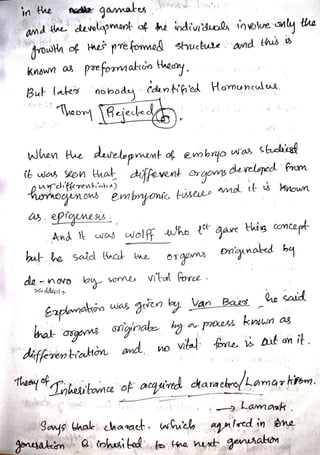 in the gamates.
and the development of the individuals involve only the
growth of their preformed structure. and this is
known as preformation theory.
But later nobody identified Homunculus.
Theory Rejected
When the development of embryo was studied
it was seen that different orgams developed from
(undifferentiated)
homogenous embryonic tissues and it is known
as epigenesis.
And it was wolff who 1st gave this concept
but he said that the orgams originated by
de-novo by some vital force.
Explanation was given by Van Baer he said
that orgams originate by a process known as
differentiation and no vital force is out on it.
Theory of Inheritance of acquired characters/Lamarkism.
→ Lamark.
Says that charact. which aquired in one
generation is inherited to the next generation